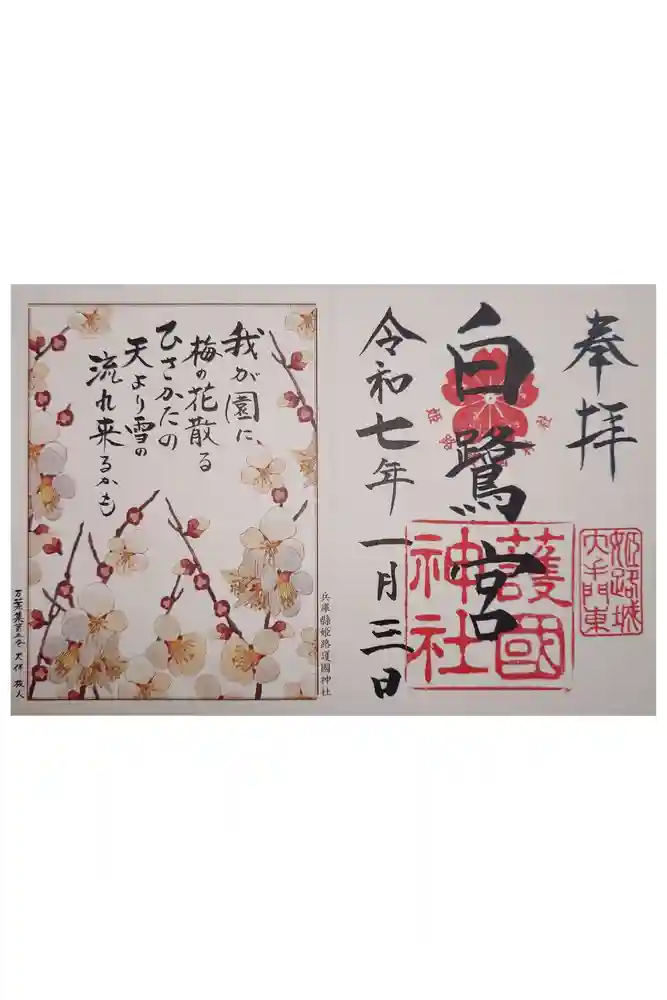 奉拝
白鷺宮
令和七年一月三日
姫路城
大手門東
護國
神社
兵庫縣姫路護國神社
我が園に、
梅の花散る
ひさかたの
天より雪の
流れ来るかも
万葉集第五巻 大伴 旅人